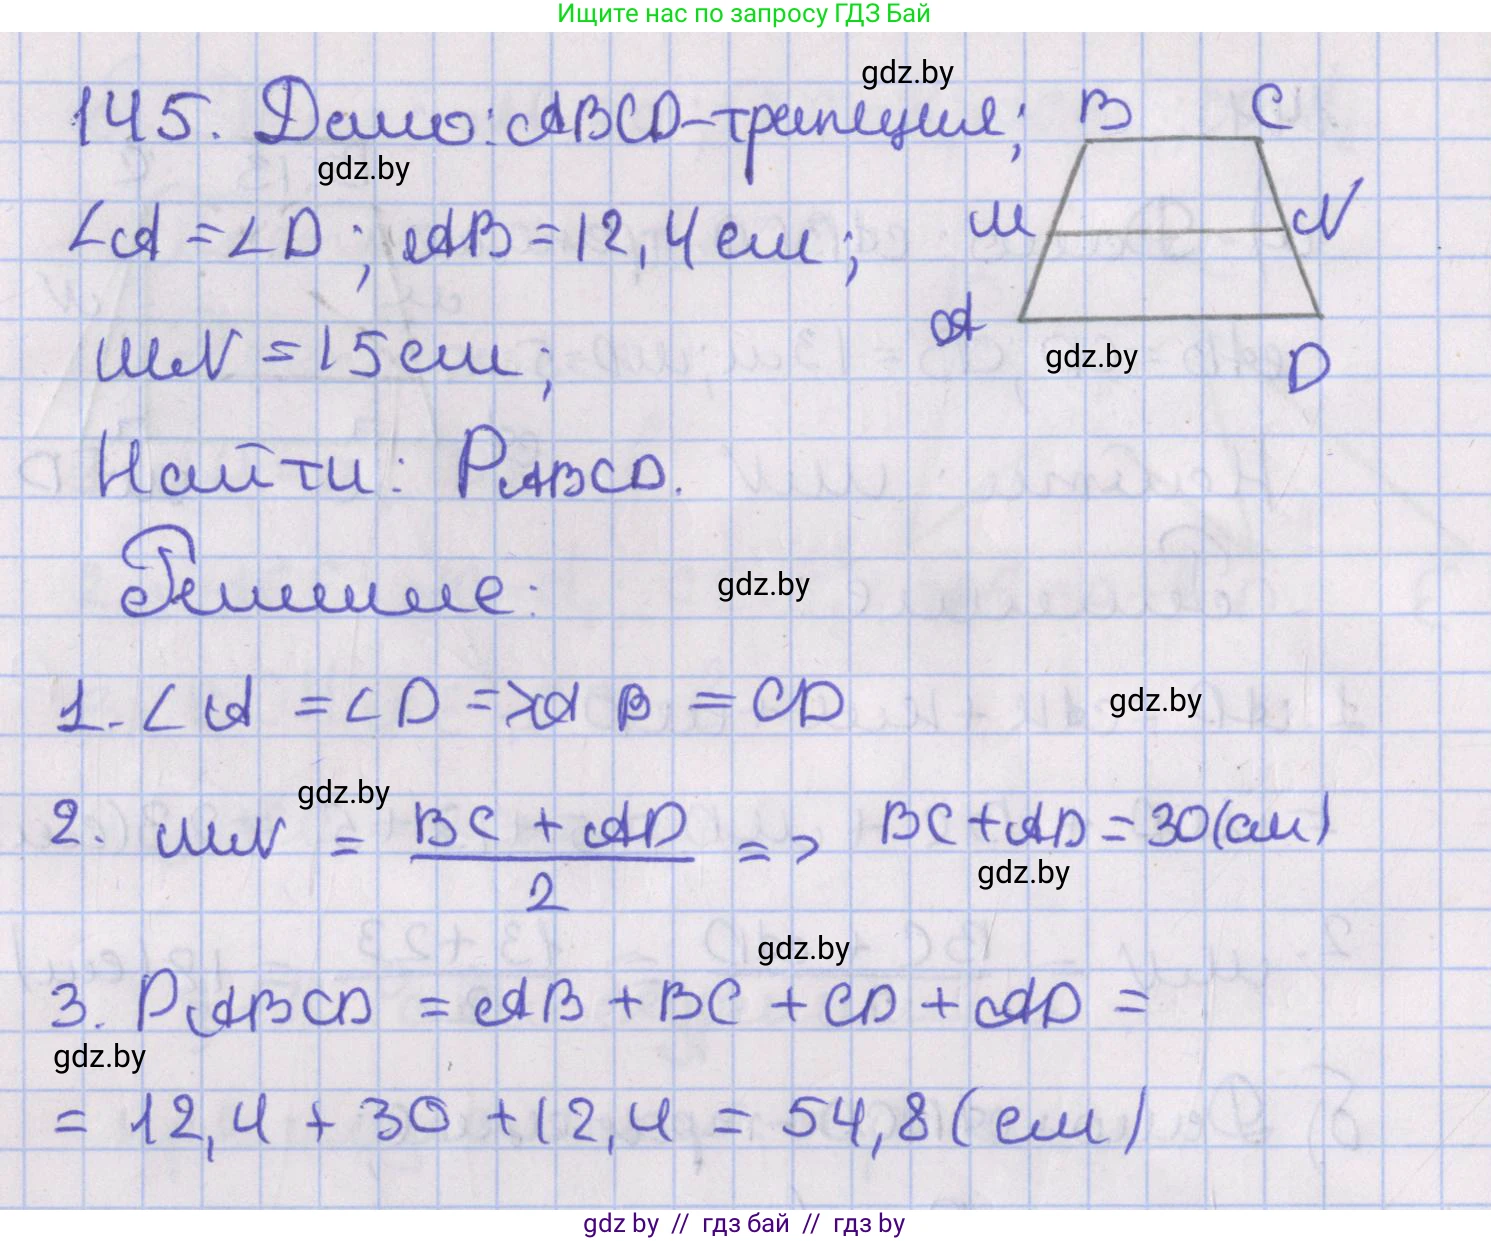 Ищите нас по запросу ГДЗ Бай
gdz.by
145. Дано: ABCD-трапеция; B C
gdz.by
∠A = ∠D; AB = 12,4 см; M N
MN = 15 см; A gdz.by D
Найти: PABCD.
Решение: gdz.by
1. ∠A = ∠D => AB = CD gdz.by
gdz.by
2. MN = BC + AD / 2 => BC + AD = 30 (см)
gdz.by
gdz.by
3. PABCD = AB + BC + CD + AD =
gdz.by
= 12,4 + 30 + 12,4 = 54,8 (см)
gdz by // гдз бай // гдз by